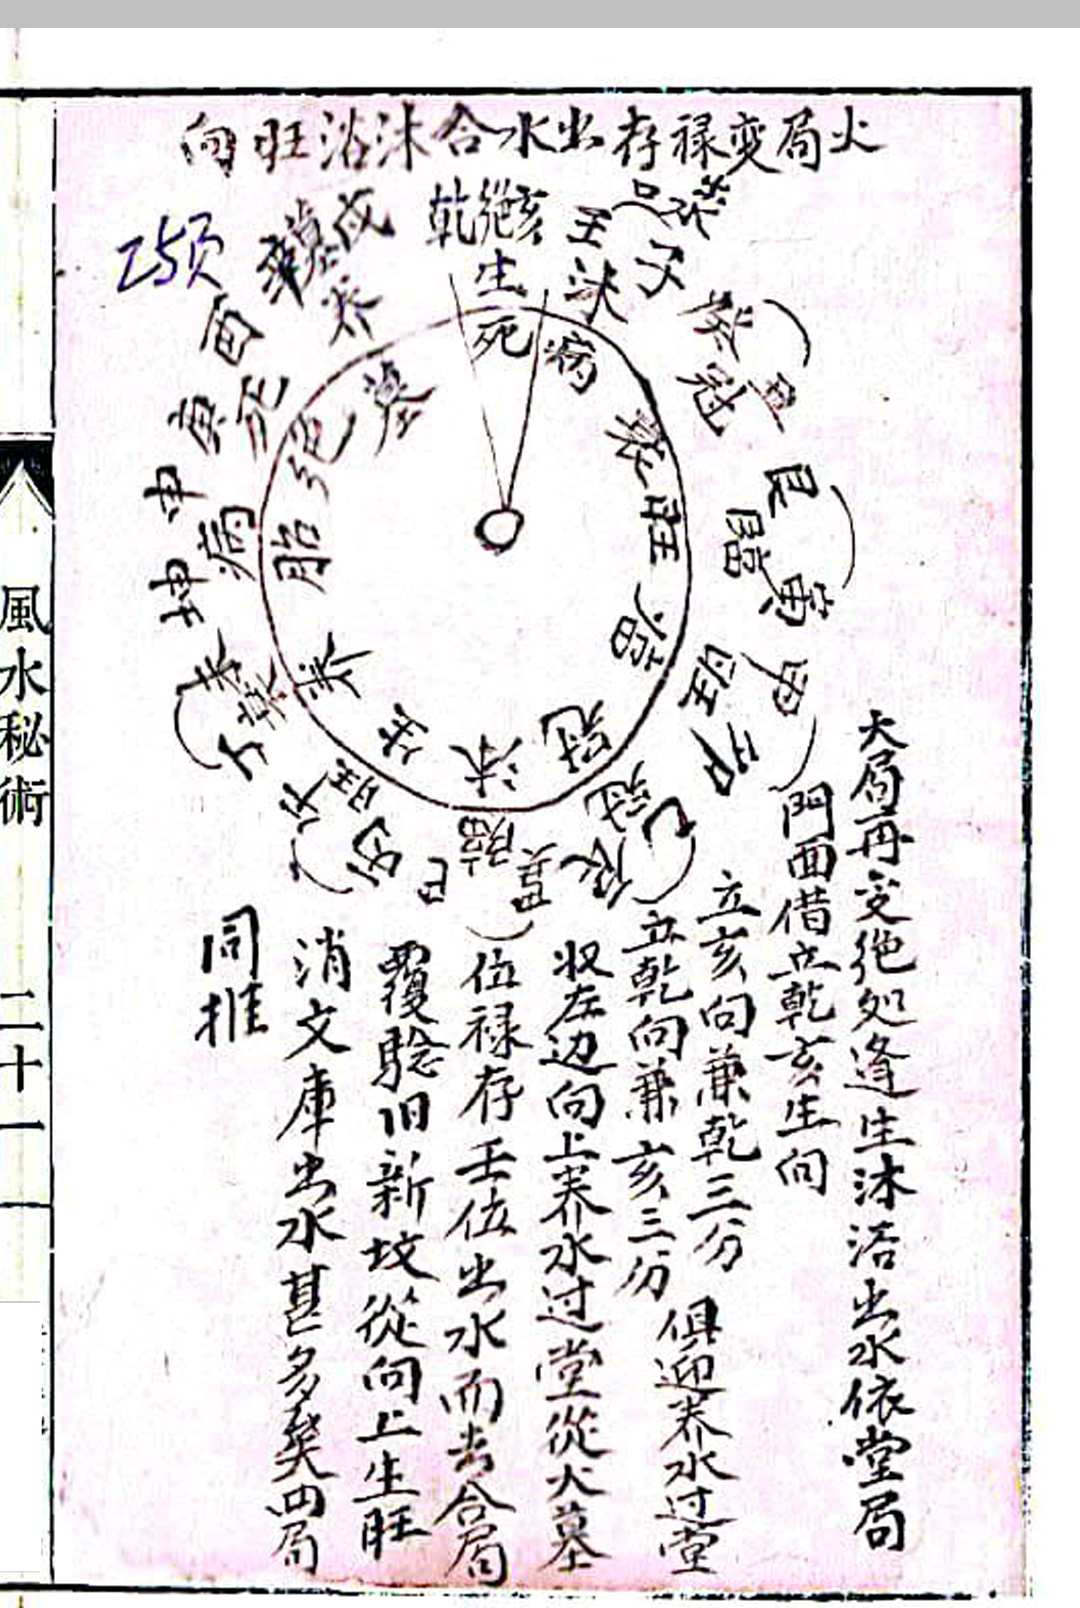 火局变禄存出水合沐浴旺向
乙55页
戌
墓
养
乾絶亥
生
壬
沐
子
癸
冠
丑
艮
臨
寅
甲
旺
卯
衰
乙
冠
辰
巽
臨
巳
丙
旺
午
丁
衰
未
坤
病
申
庚
死
酉
死
病
衰
旺
臨
冠
沐
生
养
胎
绝
墓
火局再变绝処逢生沐浴出水依堂局
門面借立乾亥生向
立亥向兼乾三分
立乾向兼亥三分
俱迎养水过堂
收左边向上养水过堂從火墓
位禄存壬位出水而去合局
覆騐旧新坟從向上生旺
消文庫出水甚多矣四局
同推
風水秘術
二十一